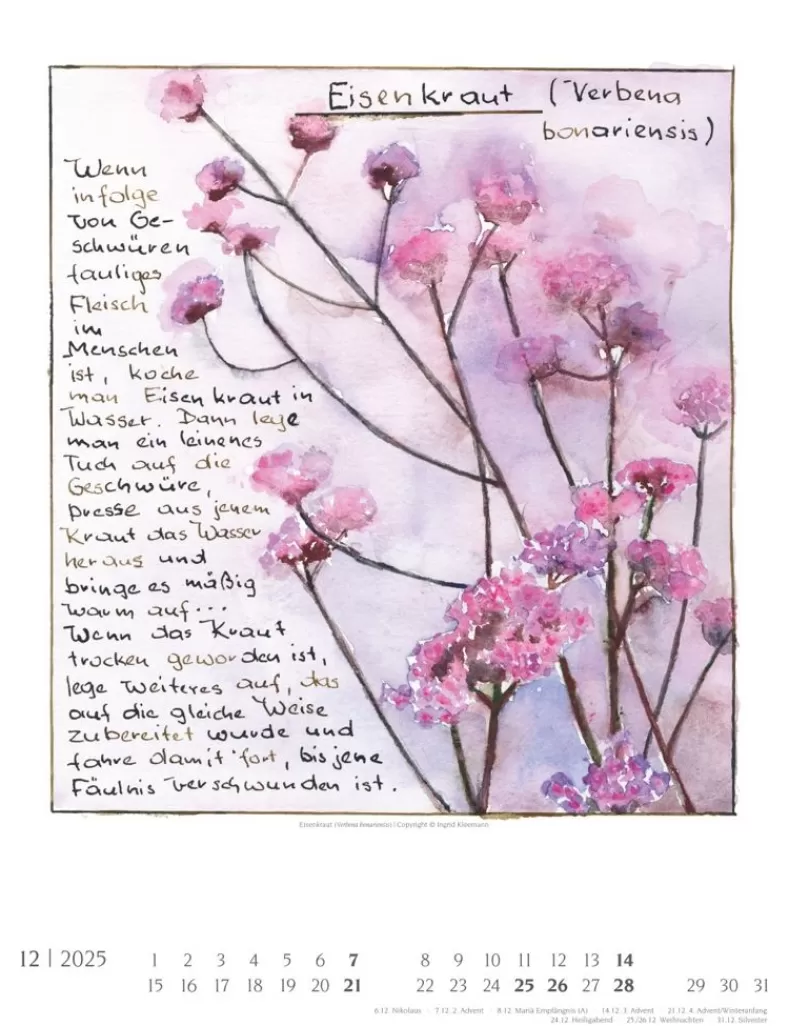 Eisenkraut (Verbena
bonariensis)
Wenn
infolge
von Ge-
schwüren
fauliges
Fleisch
im
Menschen
ist, koche
man Eisenkraut in
Wasser. Dann lege
man ein leinenes
Tuch auf die
Geschwüre,
presse aus jenem
Kraut das Wasser
heraus und
bringe es mäßig
warm auf...
Wenn das Kraut
trocken geworden ist,
lege weiteres auf, das
auf die gleiche Weise
zubereitet wurde und
fahre damit fort, bis jene
Fäulnis verschwunden ist.
Eisenkraut (Verbena bonariensis) | Copyright © Ingrid Kleemann
12 | 2025 1 2 3 4 5 6 7 8 9 10 11 12 13 14
15 16 17 18 19 20 21 22 23 24 25 26 27 28 29 30 31
6.12. Nikolaus · 7.12. 2. Advent · 8.12. Mariä Empfängnis (A) · 14.12. 3. Advent · 21.12. 4. Advent/Winteranfang
24.12. Heiligabend · 25./26.12. Weihnachten · 31.12. Silvester